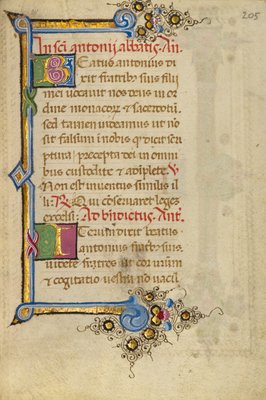 205
In sci antonij abbatis. An.
Beatus antonius di
xit fratribus suis filii
mei vocavit nos deus in or
dine monacorum et sacerdotū
sed tamen videamus ut no
sit falsum in nobis quod dicit scri
ptura precepta dei in omni
bus custodite et adiplete V
Non est inventus similis il
li R Qui conservaret leges
excelsi Ad bndictus. Ant.
Iterum dixit beatus
antonius fratribus suis
vivete fratres ut cor unum
et cogitatio vestra no vacil